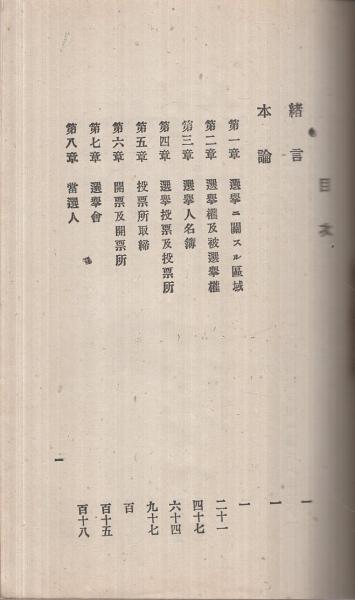 目次
緒言 一
本論 一
第一章 選擧ニ關スル區域 一
第二章 選擧權及被選擧權 二十一
第三章 選擧人名簿 四十七
第四章 選擧投票及投票所 六十四
第五章 投票所取締 九十七
第六章 開票及開票所 百
第七章 選擧會 百十五
第八章 當選人 百十八
一